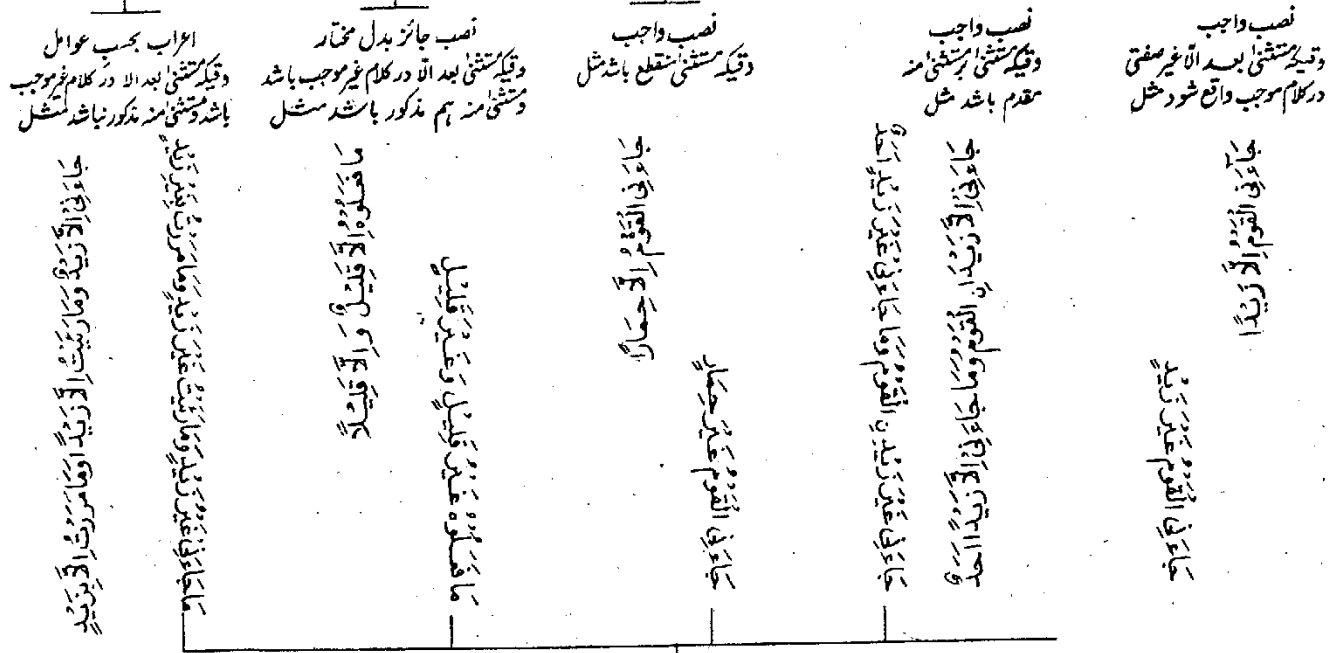 نصب واجب
وقتیکه مستثنیٰ بعد الّا غیر صفتی
در کلام موجب واقع شود مثل
جَاءَنِی الْقَوْمُ اِلَّا زَیْدًا
جَاءَنِی الْقَوْمُ غَیْرَ زَیْدٍ
نصب واجب
وقتیکه مستثنیٰ بر مستثنیٰ منه
مقدم باشد مثل
جَاءَنِی اِلَّا زَیْدَانِ الْقَوْمُ وَمَا جَاءَنِی اِلَّا زَیْدًا اَحَدٌ
جَاءَنِی غَیْرَ زَیْدِنِ الْقَوْمُ وَمَا جَاءَنِی غَیْرَ زَیْدٍ اَحَدٌ
نصب واجب
وقتیکه مستثنیٰ منقطع باشد مثل
جَاءَنِی الْقَوْمُ اِلَّا حِمَارًا
جَاءَنِی الْقَوْمُ غَیْرَ حِمَارٍ
نصب جائز بدل مختار
وقتیکه مستثنیٰ بعد الّا در کلام غیر موجب باشد
ومستثنیٰ منه ہم مذکور باشد مثل
مَا فَعَلُوْهُ اِلَّا قَلِیْلٌ وَ اِلَّا قَلِیْلًا
مَا فَعَلُوْهُ غَیْرُ قَلِیْلٍ وَغَیْرَ قَلِیْلٍ
اعراب بحسب عوامل
وقتیکه مستثنیٰ بعد الا در کلام غیر موجب
باشد ومستثنیٰ منه مذکور نباشد مثل
جَاءَنِی اِلَّا زَیْدٌ وَمَا رَئَیْتُ اِلَّا زَیْدًا وَمَا مَرَرْتُ اِلَّا بِزَیْدٍ
مَا جَاءَنِی غَیْرُ زَیْدٍ وَمَا رَئَیْتُ غَیْرَ زَیْدٍ وَمَا مَرَرْتُ بِغَیْرِ زَیْدٍ